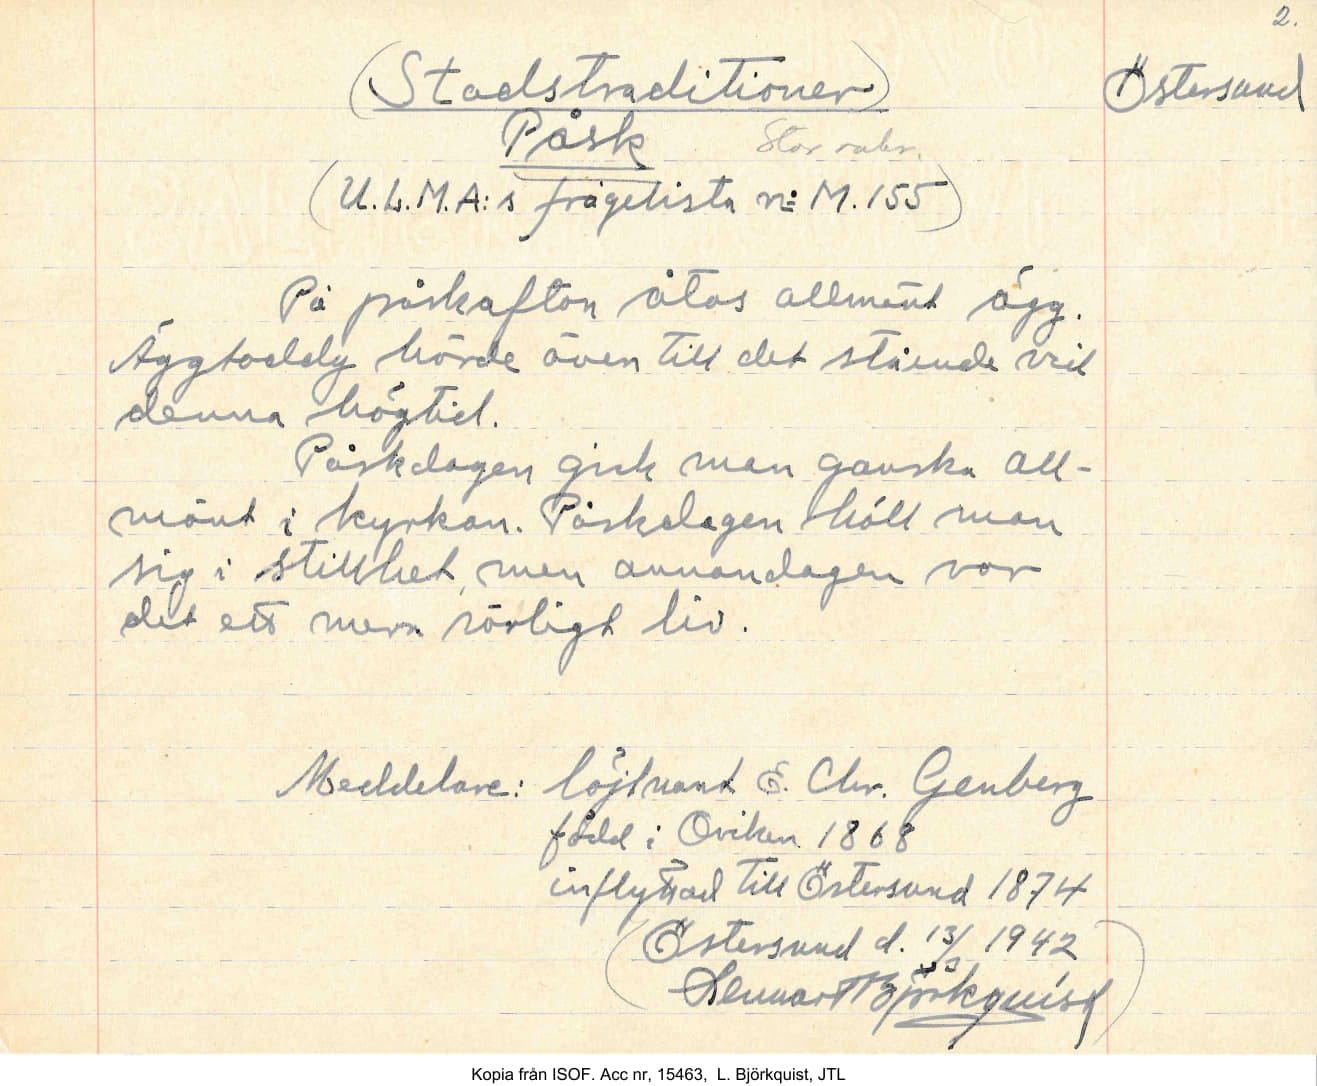 2.
(Stadstraditioner) Östersund
Påsk Stor rubr.
(U.L.M.A:s frågelista nr M.155)
På påskafton åtos allmänt ägg.
Äggtoddy hörde även till det stående vid
denna högtid.
Påskdagen gick man ganska all-
mänt i kyrkan. Påskdagen höll man
sig i stillhet, men annandagen var
det ett mera rörligt liv.
Meddelare: löjtnant E. Chr. Genberg
född i Oviken 1868
inflyttad till Östersund 1874
(Östersund d. 13/3 1942
Lennart Björkquist)
Kopia från ISOF. Acc nr, 15463, L. Björkquist, JTL